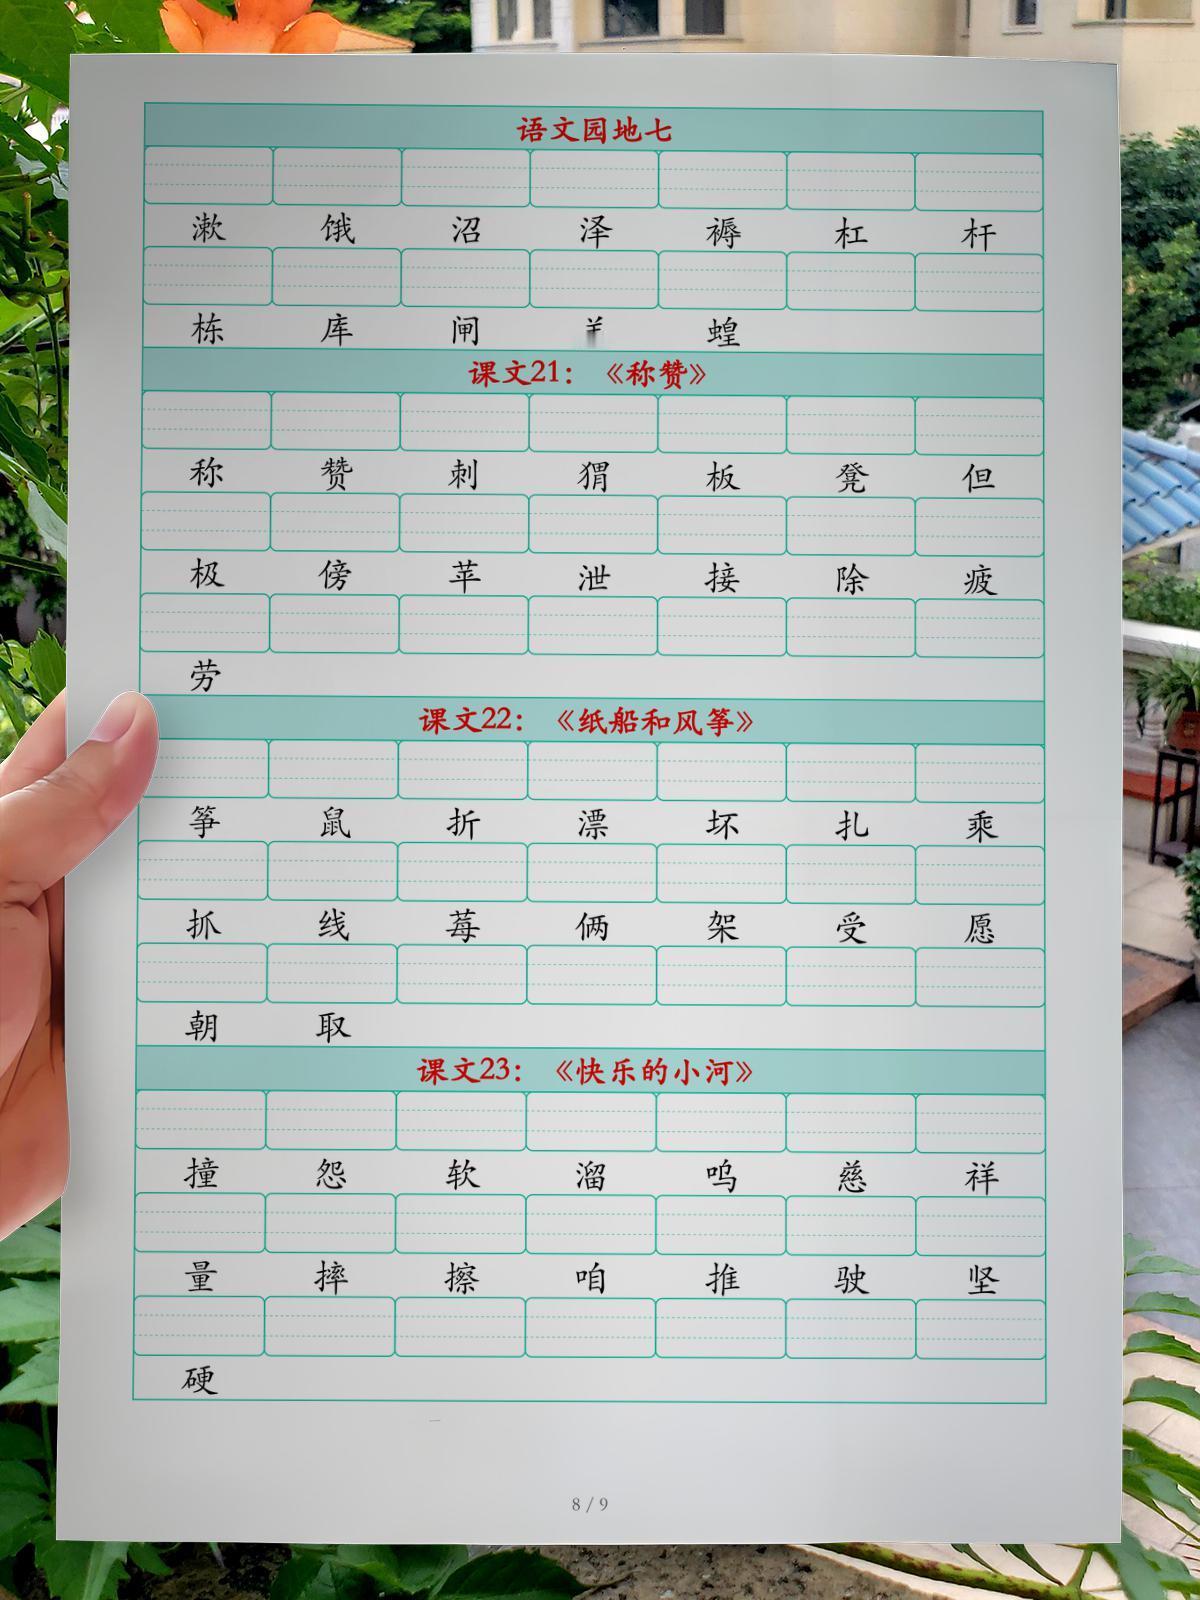 语文园地七
漱 饿 沼 泽 褥 杠 杆
栋 库 闸 蝗
课文21：《称赞》
称 赞 刺 猬 板 凳 但
极 傍 苹 泄 接 除 疲
劳
课文22：《纸船和风筝》
筝 鼠 折 漂 坏 扎 乘
抓 线 莓 俩 架 受 愿
朝 取
课文23：《快乐的小河》
撞 怨 软 溜 呜 慈 祥
量 摔 擦 咱 推 驶 坚
硬
8 / 9